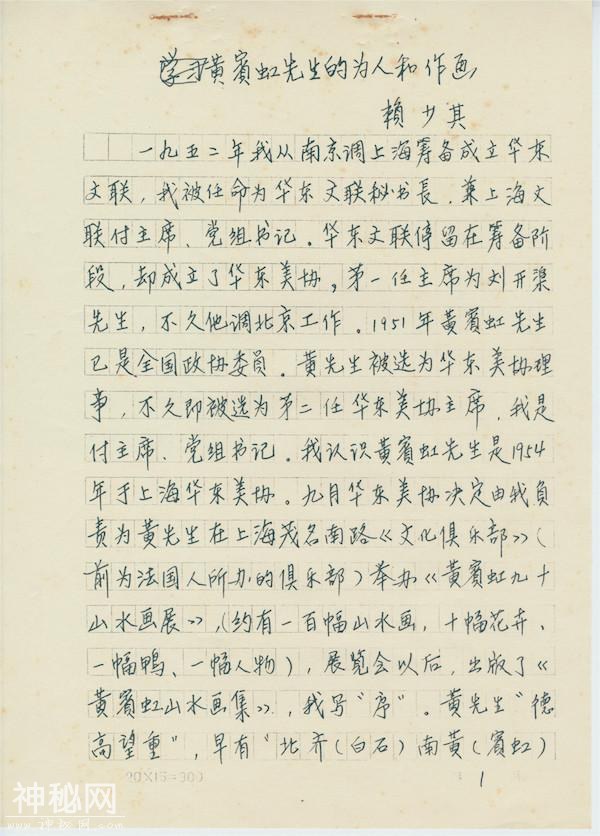 学习黄賓虹先生的为人和作画
賴少其
一九五二年我从南京调上海筹备成立华东
文联，我被任命为华东文联秘书長．兼上海文
联付主席、党组书记．华东文联停留在筹备阶
段，却成立了华东美协。第一任主席为刘开渠
先生，不久他调北京工作．1951年黄賓虹先生
已是全国政协委員．黄先生被选为华东美协理
事，不久即被选为第二任华东美协主席．我是
付主席、党组书记．我认识黄賓虹先生是1954
年于上海华东美协．九月华东美协决定由我負
责为黄先生在上海茂名南路《文化俱乐部》（
前为法国人所办的俱乐部）举办《黄賓虹九十
山水画展》，（约有一百幅山水画，十幅花卉、
一幅鸭、一幅人物），展览会以后，出版了《
黄賓虹山水画集》，我写“序”．黄先生“德
高望重”，早有“北齐（白石）南黄（賓虹）
20×15=300
1
神秘网